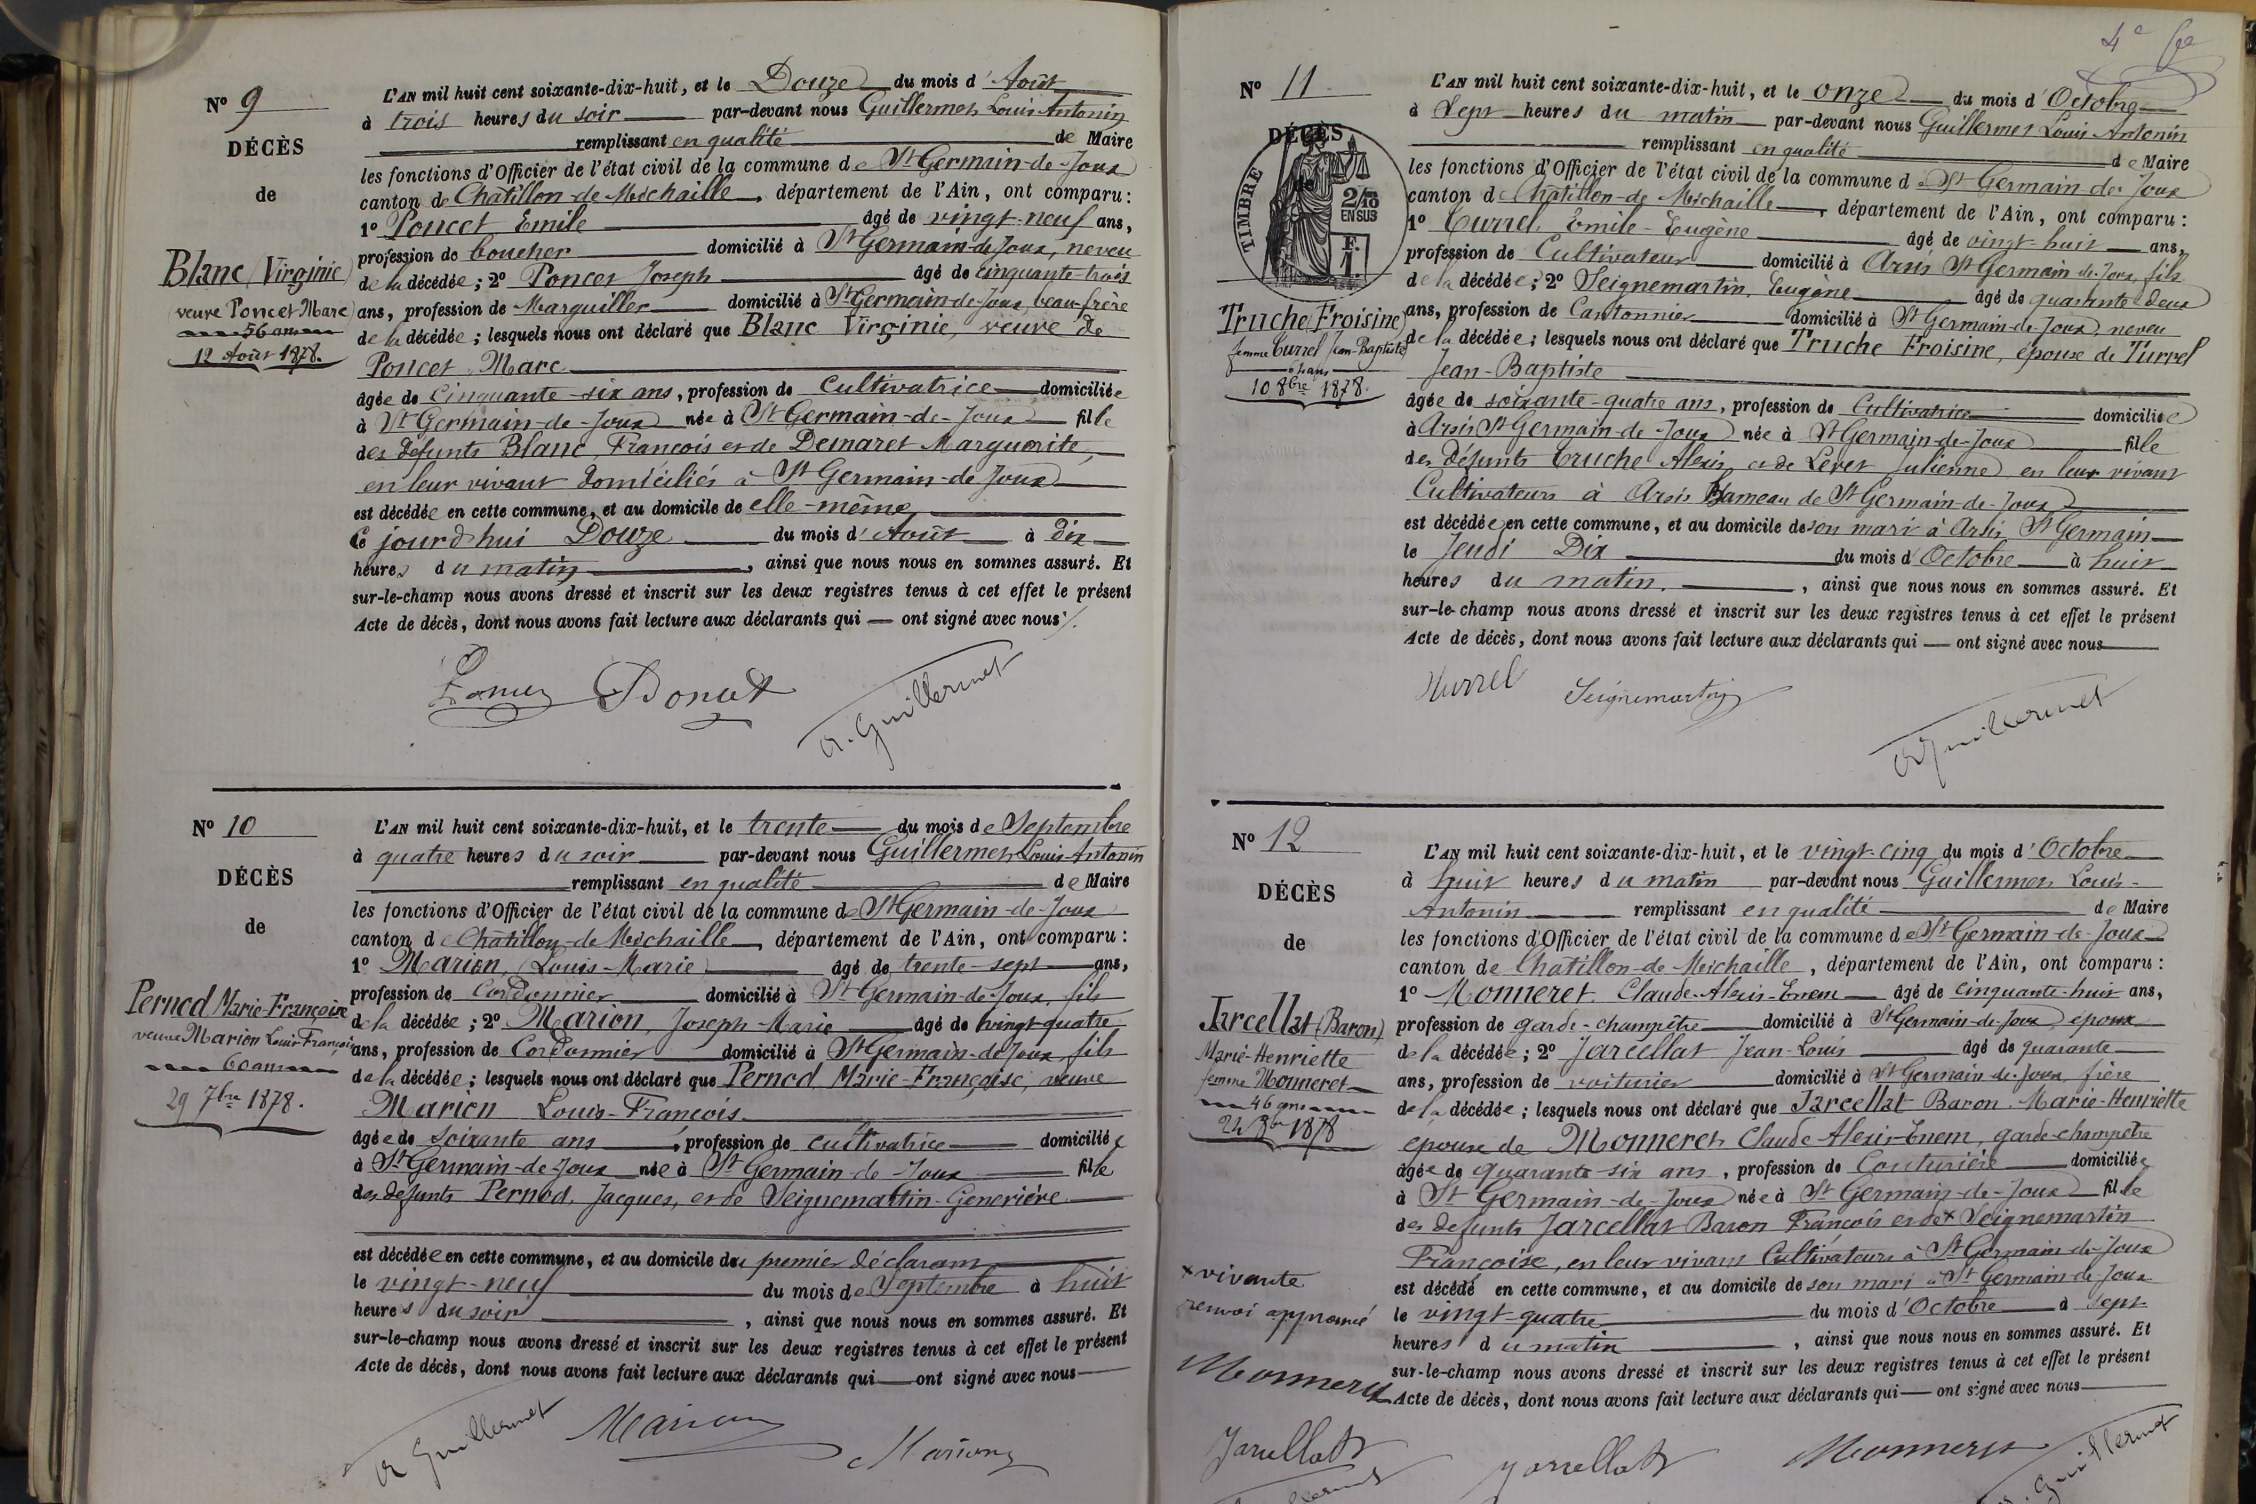 Nº 9
DÉCÈS
de
Blanc Virginie
veuve Poncet Marc
56 ans
12 Août 1878.
L'AN mil huit cent soixante-dix-huit, et le Douze du mois d'Août
à trois heures du soir par-devant nous Guillermet Louis Antonin
remplissant en qualité de Maire
les fonctions d'Officier de l'état civil de la commune de St Germain-de-Joux
canton de Châtillon-de-Michaille, département de l'Ain, ont comparu :
1º Poncet Emile âgé de vingt-neuf ans,
profession de boucher domicilié à St Germain-de-Joux, neveu
de la décédée ; 2º Poncet Joseph âgé de cinquante-trois
ans, profession de Marguiller domicilié à St Germain-de-Joux, beau-frère
de la décédée ; lesquels nous ont déclaré que Blanc Virginie, veuve de
Poncet Marc
âgée de cinquante-six ans, profession de cultivatrice domiciliée
à St Germain-de-Joux née à St Germain-de-Joux fille
des défunts Blanc, François et de Demaret Marguerite,
en leur vivant domiciliés à St Germain-de-Joux
est décédée en cette commune, et au domicile de elle-même
Ce jourd'hui Douze du mois d'Août à dix
heures du matin, ainsi que nous nous en sommes assuré. Et
sur-le-champ nous avons dressé et inscrit sur les deux registres tenus à cet effet le présent
Acte de décès, dont nous avons fait lecture aux déclarants qui — ont signé avec nous
Poncet
A. Guillermet
Nº 10
DÉCÈS
de
Pernod Marie-Françoise
veuve Marion Louis François
60 ans
29 7bre 1878.
L'AN mil huit cent soixante-dix-huit, et le trente du mois de Septembre
à quatre heures du soir par-devant nous Guillermet Louis-Antonin
remplissant en qualité de Maire
les fonctions d'Officier de l'état civil de la commune de St Germain-de-Joux
canton de Châtillon-de-Michaille, département de l'Ain, ont comparu :
1º Marion, Louis-Marie âgé de trente-sept ans,
profession de Cordonnier domicilié à St Germain-de-Joux, fils
de la décédée ; 2º Marion, Joseph-Marie âgé de vingt-quatre
ans, profession de Cordonnier domicilié à St Germain-de-Joux, fils
de la décédée ; lesquels nous ont déclaré que Pernod Marie-Françoise, veuve
Marion Louis-François
âgée de soixante ans, profession de cultivatrice domiciliée
à St Germain-de-Joux née à St Germain-de-Joux fille
des défunts Pernod, Jacques, et de Seignemartin Generière
est décédée en cette commune, et au domicile du premier déclarant
le vingt-neuf du mois de Septembre à huit
heures du soir, ainsi que nous nous en sommes assuré. Et
sur-le-champ nous avons dressé et inscrit sur les deux registres tenus à cet effet le présent
Acte de décès, dont nous avons fait lecture aux déclarants qui — ont signé avec nous
A Guillermet Marion Marion
4e
Nº 11
DÉCÈS
de
TIMBRE
2/10
EN SUS
F.
1.
Truche Froisine
femme Turrel Jean-Baptiste
10 8bre 1878.
L'AN mil huit cent soixante-dix-huit, et le onze du mois d'Octobre
à Sept heures du matin par-devant nous Guillermet Louis Antonin
remplissant en qualité de Maire
les fonctions d'Officier de l'état civil de la commune de St Germain-de-Joux
canton de Châtillon-de-Michaille, département de l'Ain, ont comparu :
1º Turrel, Emile-Eugène âgé de vingt-huit ans,
profession de Cultivateur domicilié à Arsis St Germain-de-Joux, fils
de la décédée ; 2º Seignemartin, Eugène âgé de quarante-deux
ans, profession de Cantonnier domicilié à St Germain-de-Joux, neveu
de la décédée ; lesquels nous ont déclaré que Truche Froisine, épouse de Turrel
Jean-Baptiste
âgée de soixante-quatre ans, profession de Cultivatrice domiciliée
à Arsis St Germain-de-Joux née à St Germain-de-Joux fille
des défunts Truche Alexis et de Levet Julienne en leur vivant
Cultivateurs à Arsis Hameau de St Germain-de-Joux
est décédée en cette commune, et au domicile de son mari à Arsis St Germain
le Jeudi Dix du mois d'Octobre à huit
heures du matin, ainsi que nous nous en sommes assuré. Et
sur-le-champ nous avons dressé et inscrit sur les deux registres tenus à cet effet le présent
Acte de décès, dont nous avons fait lecture aux déclarants qui — ont signé avec nous
Turrel Seignemartin
A Guillermet
Nº 12
DÉCÈS
de
Jarcellat (Baron)
Marie-Henriette
femme Monneret
46 ans
24 8bre 1878
L'AN mil huit cent soixante-dix-huit, et le vingt-cinq du mois d'Octobre
à huit heures du matin par-devant nous Guillermet Louis-
Antonin remplissant en qualité de Maire
les fonctions d'Officier de l'état civil de la commune de St Germain-de-Joux
canton de Châtillon-de-Michaille, département de l'Ain, ont comparu :
1º Monneret Claude-Alexis-Enem âgé de cinquante-huit ans,
profession de garde-champêtre domicilié à St Germain-de-Joux, époux
de la décédée ; 2º Jarcellat Jean-Louis âgé de quarante
ans, profession de voiturier domicilié à St Germain-de-Joux, frère
de la décédée ; lesquels nous ont déclaré que Jarcellat Baron Marie-Henriette
épouse de Monneret Claude Alexis-Enem, garde-champêtre
âgée de quarante-six ans, profession de Couturière domiciliée
à St Germain-de-Joux née à St Germain-de-Joux fille
des défunts Jarcellat Baron François et de x Seignemartin
Françoise, en leur vivant Cultivateurs à St Germain-de-Joux
est décédé en cette commune, et au domicile de son mari à St Germain-de-Joux
le vingt-quatre du mois d'Octobre à sept
heures du matin, ainsi que nous nous en sommes assuré. Et
sur-le-champ nous avons dressé et inscrit sur les deux registres tenus à cet effet le présent
Acte de décès, dont nous avons fait lecture aux déclarants qui — ont signé avec nous
x vivante
renvoi approuvé
Monneret
Jarcellat Jarcellat Monneret A. Guillermet